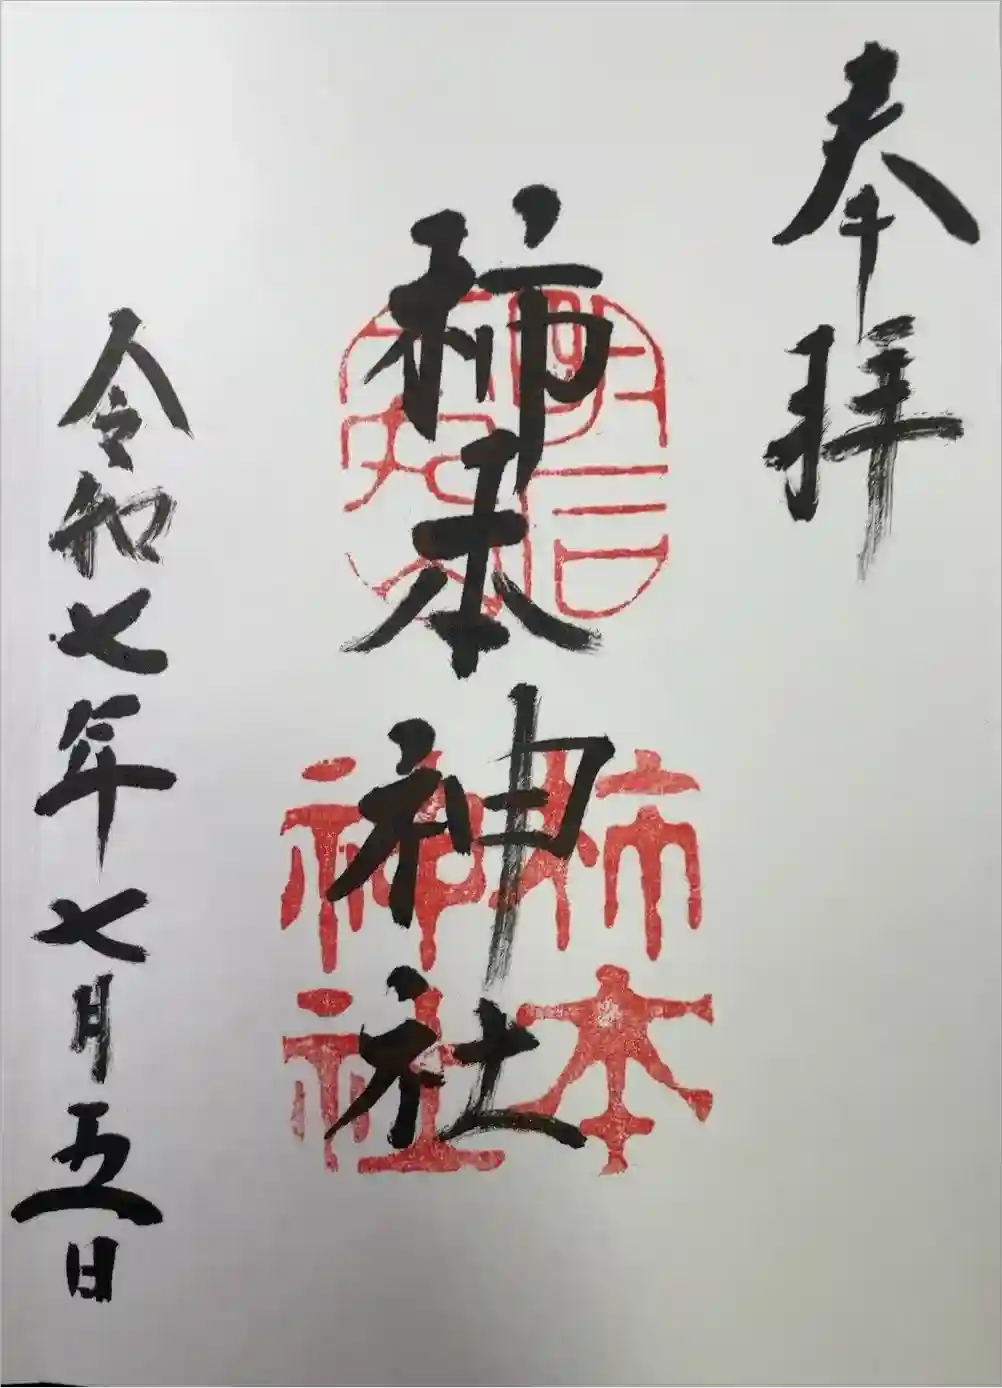 奉拝
柿本神社
令和七年七月五日
柿本
神社